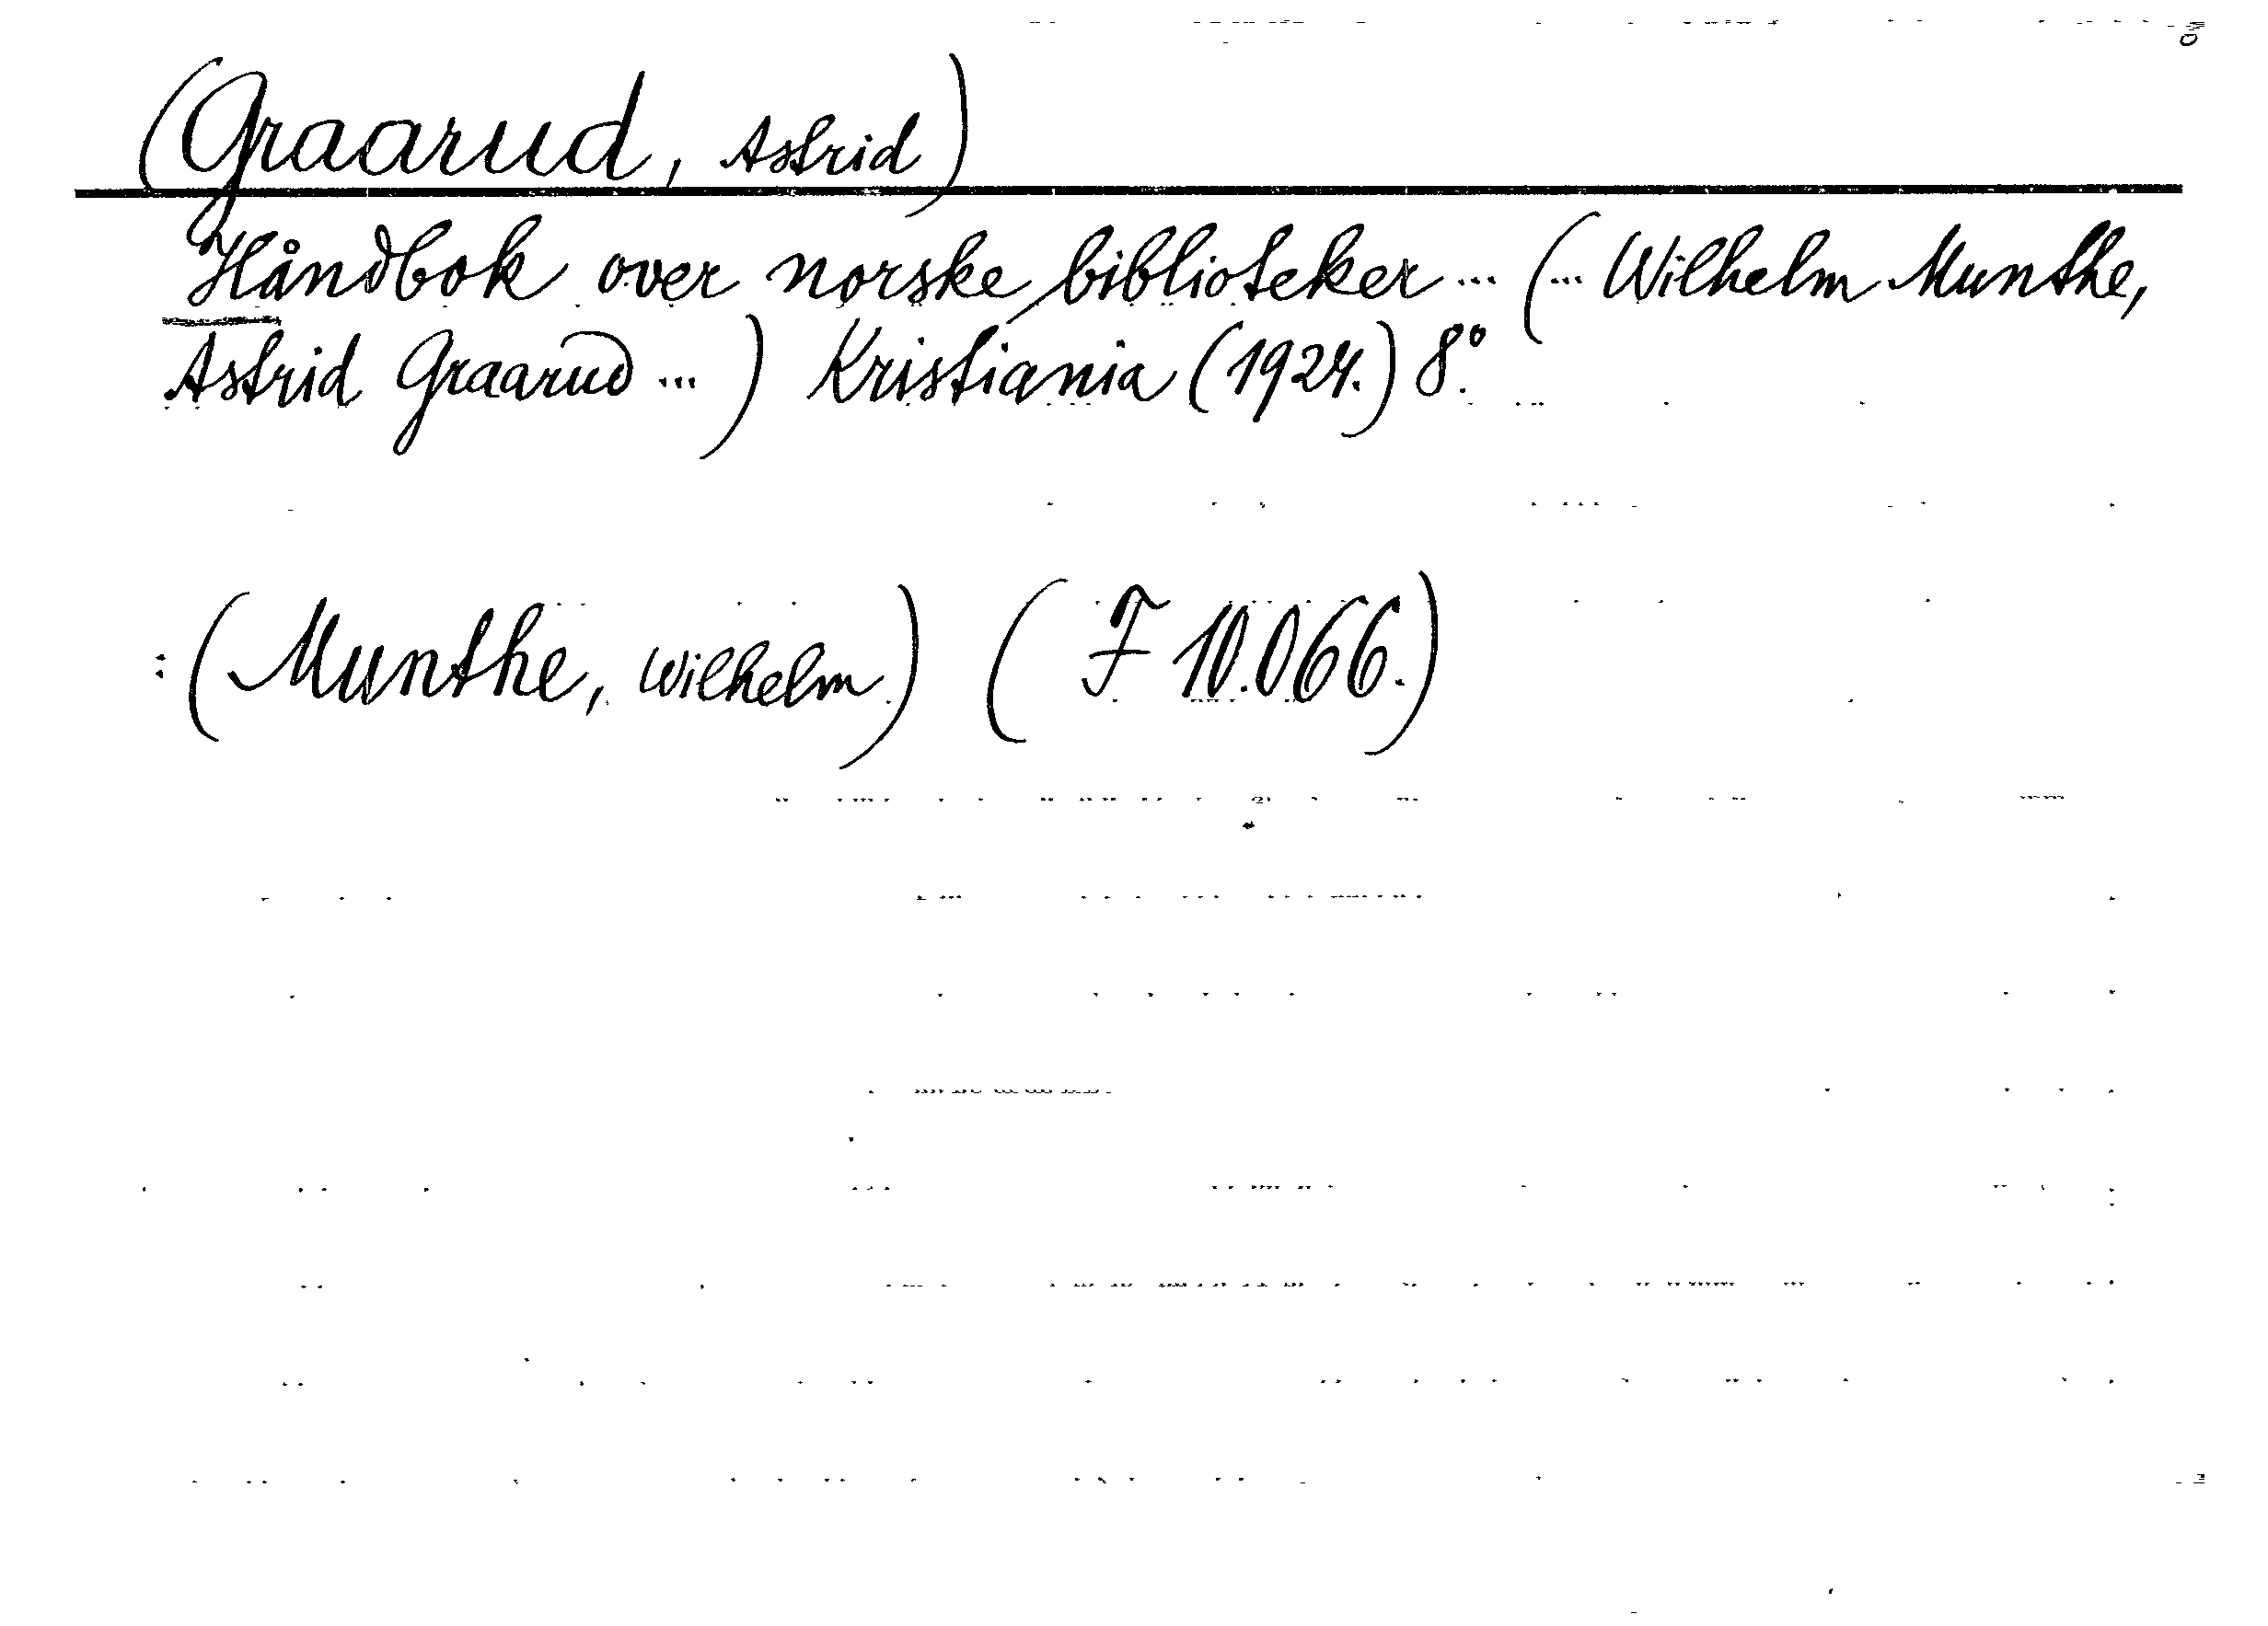 (Graarud, Astrid)
Håndbok over norske biblioteker ... (... Wilhelm Munthe,
Astrid Graarud ...) Kristiania (1924.) 8.º
:(Munthe, Wilhelm) (F 10.066.)